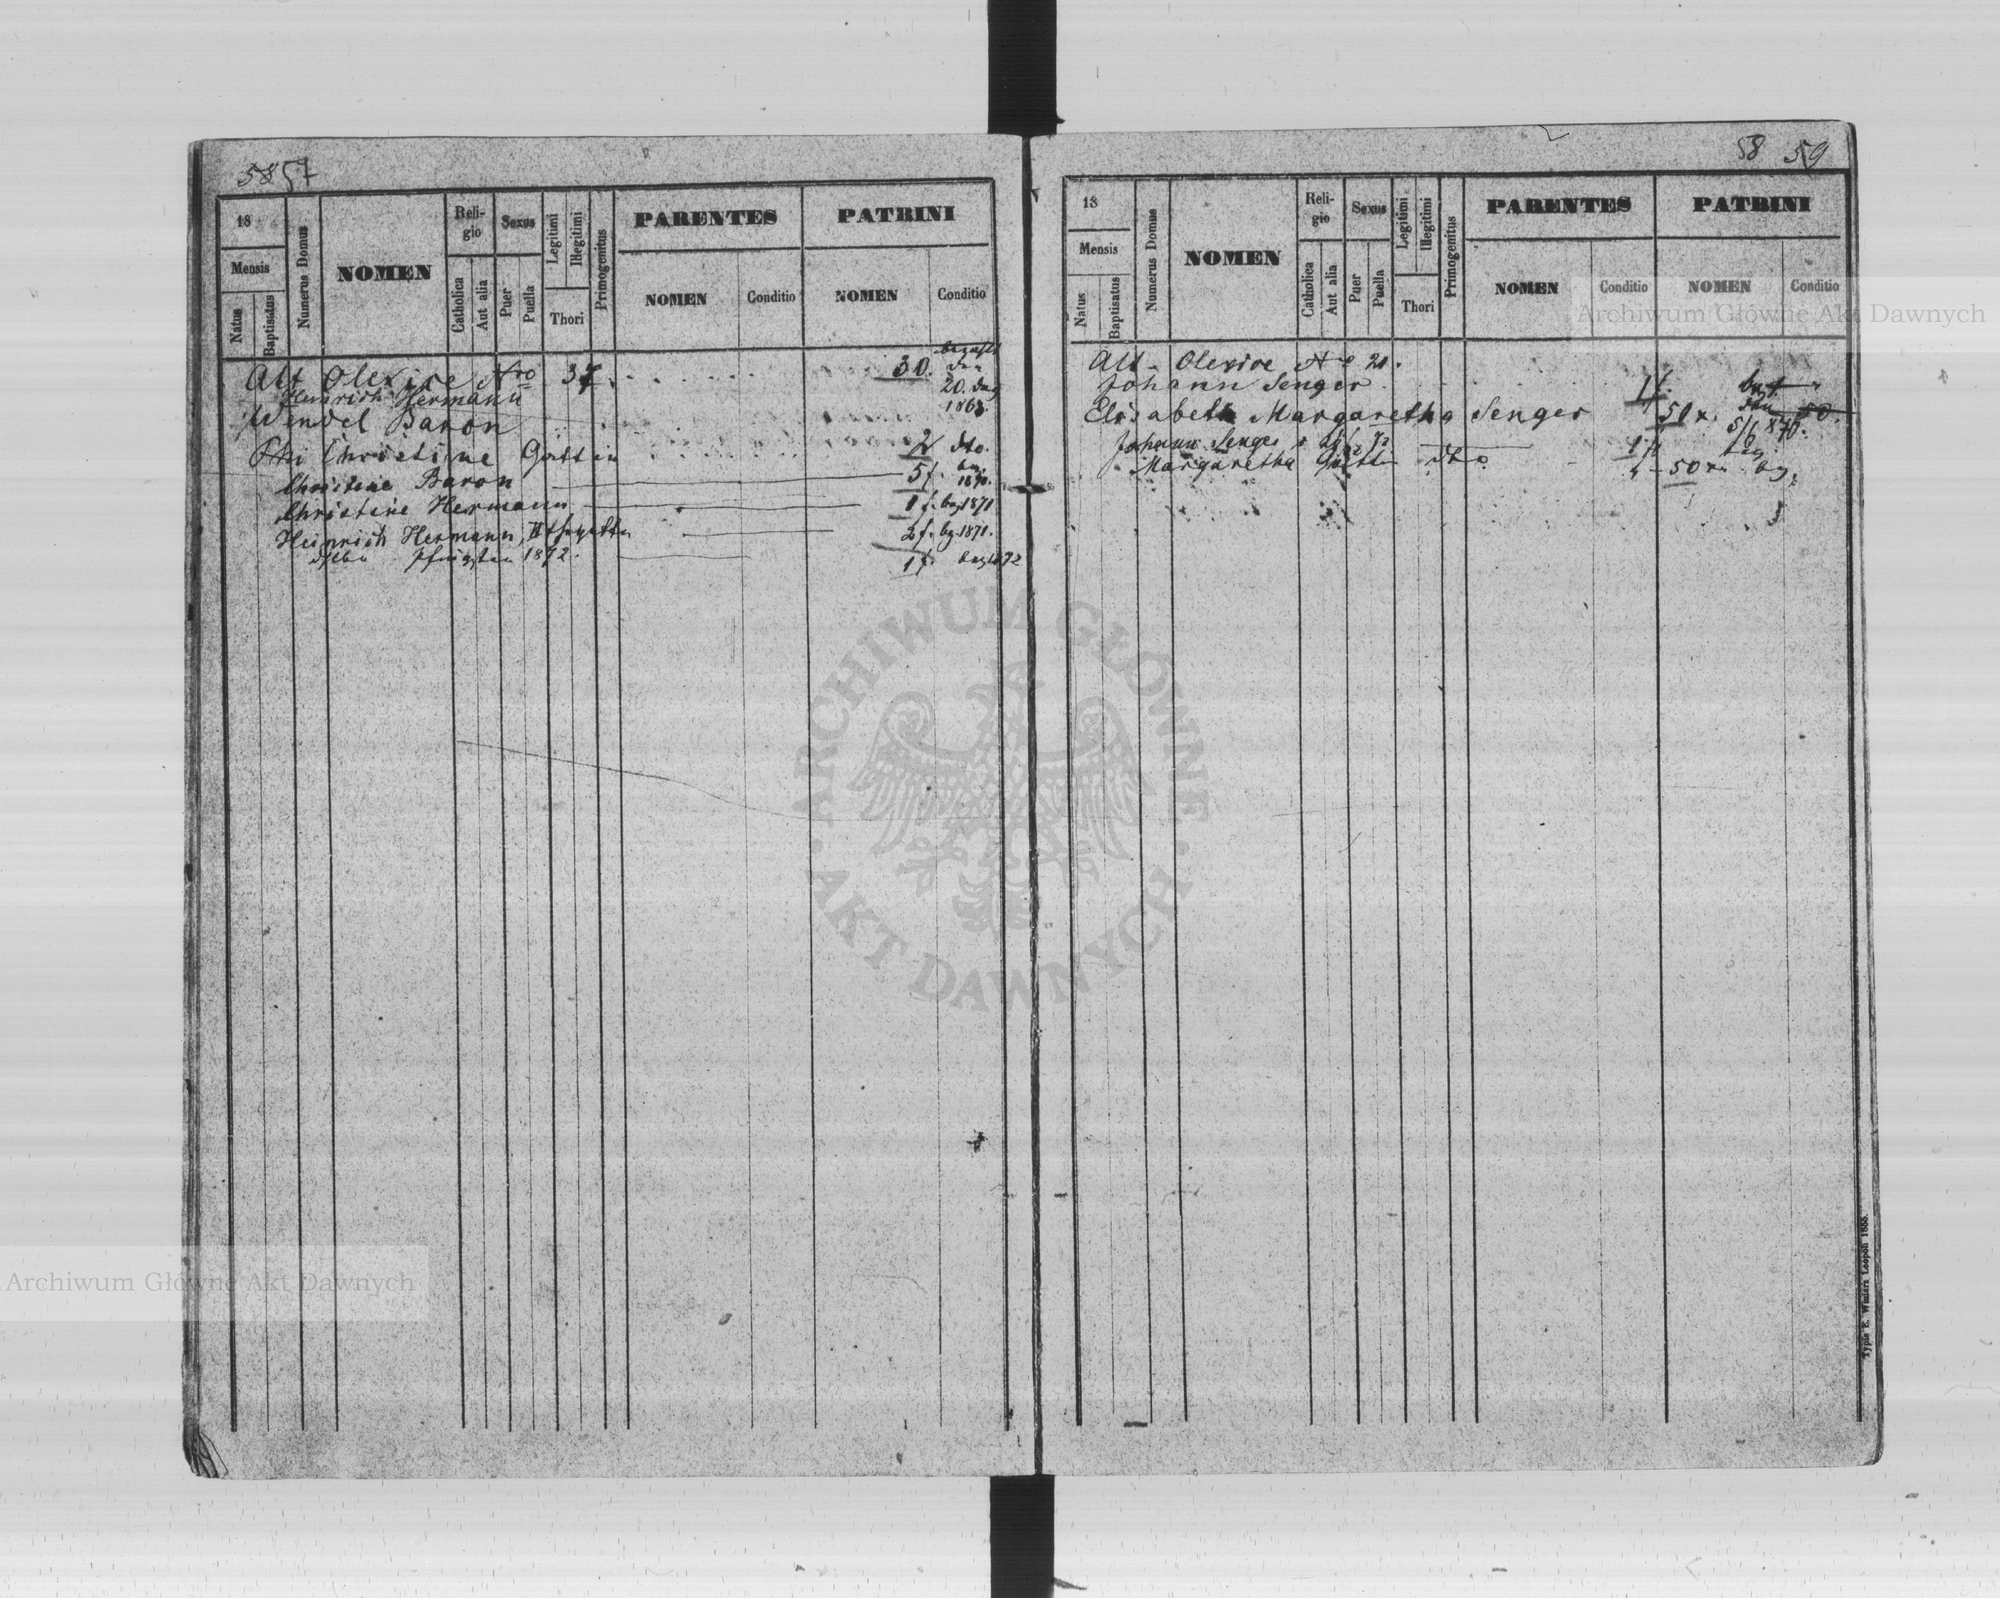 58 57
18
Mensis
Natus
Baptisatus
Numerus Domus
NOMEN
Reli-
gio
Catholica
Aut alia
Sexus
Puer
Puella
Legitimi
Illegitimi
Thori
Primogenitus
PARENTES
NOMEN
Conditio
PATRINI
NOMEN
Conditio
Alt Olexice Nro 37.
Heinrich Hermann 30. den
20.
Wendel Baron 186
Christine Gattin 2 dto.
Christine Baron 5 f. 1870.
Christine Hermann 1 f. bz 1871
Heinrich Hermann, 2 f. bz. 1871.
Pfingsten 1872. 1 f. bez 1872
58 59
18
Mensis
Natus
Baptisatus
Numerus Domus
NOMEN
Reli-
gio
Catholica
Aut alia
Sexus
Puer
Puella
Legitimi
Illegitimi
Thori
Primogenitus
PARENTES
NOMEN
Conditio
PATRINI
NOMEN
Conditio
Alt - Olexice No 20.
Johann Senger 1 f.
Elisabeth Margaretha Senger 50 x. 5/6 870.
Johann Senger 1 f
Margaretha Gattin dto 50 x. bz.
Typis E. Winiarz Leopoli 1855.
Archiwum Główne Akt Dawnych
Archiwum Główne Akt Dawnych
ARCHIWUM GŁÓWNE · AKT DAWNYCH ·